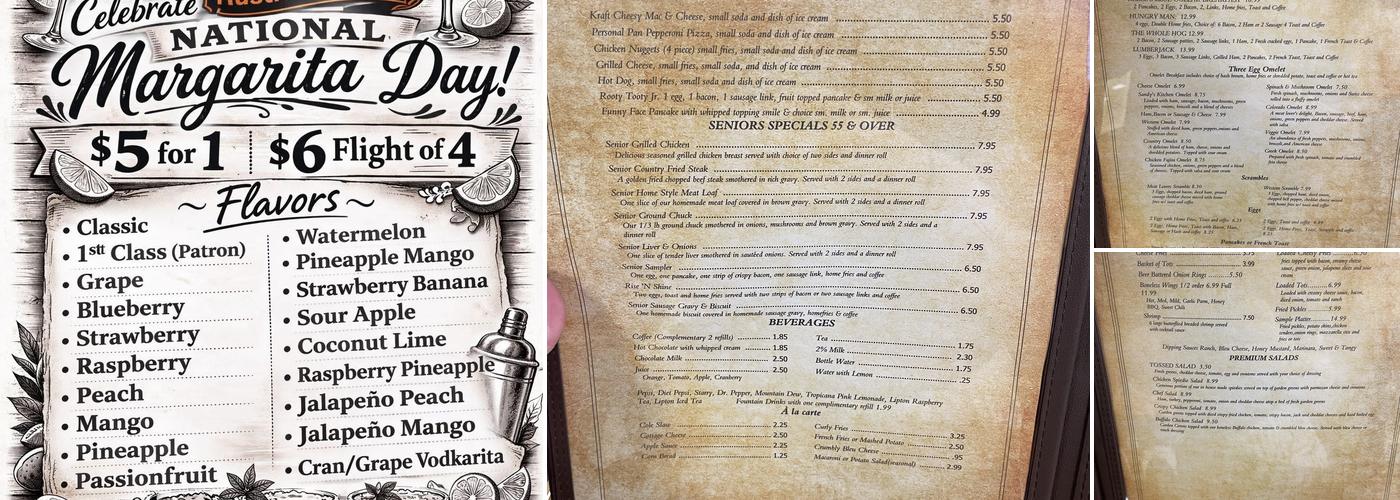 Celebrate
NATIONAL
Margarita Day!
$5 for 1
$6 Flight of 4
~ Flavors ~
• Classic
• 1stt Class (Patron)
• Grape
• Blueberry
• Strawberry
• Raspberry
• Peach
• Mango
• Pineapple
• Passionfruit
• Watermelon
• Pineapple Mango
• Strawberry Banana
• Sour Apple
• Coconut Lime
• Raspberry Pineapple
• Jalapeño Peach
• Jalapeño Mango
• Cran/Grape Vodkarita
Kraft Cheesy Mac & Cheese, small soda and dish of ice cream 5.50
Personal Pan Pepperoni Pizza, small soda and dish of ice cream 5.50
Chicken Nuggets (4 piece) small fries, small soda and dish of ice cream 5.50
Grilled Cheese, small fries, small soda and dish of ice cream 5.50
Hot Dog, small fries, small soda and dish of ice cream 5.50
Rooty Tooty Jr. 1 egg, 1 bacon, 1 sausage link, fruit topped pancake & sm milk or juice 5.50
Funny Face Pancake with whipped topping smile & choice sm. milk or sm. juice 4.99
SENIORS SPECIALS 55 & OVER
Senior Grilled Chicken 7.95
Delicious seasoned grilled chicken breast served with choice of two sides and dinner roll
Senior Country Fried Steak 7.95
A golden fried chopped beef steak smothered in rich gravy. Served with 2 sides and a dinner roll
Senior Home Style Meat Loaf 7.95
One slice of our homemade meat loaf covered in brown gravy. Served with 2 sides and a dinner roll
Senior Ground Chuck 7.95
Our 1/3 lb ground chuck smothered in onions, mushrooms and brown gravy. Served with 2 sides and a
dinner roll
Senior Liver & Onions 7.95
One slice of tender liver smothered in sautéed onions. Served with 2 sides and a dinner roll
Senior Sampler 6.50
One egg, one pancake, one strip of crispy bacon, one sausage link, home fries and coffee
Rise 'N Shine 6.50
Two eggs, toast and home fries served with two strips of bacon or two sausage links and coffee
Senior Sausage Gravy & Biscuit 6.50
One homemade biscuit covered in homemade sausage gravy, homefries & coffee
BEVERAGES
Coffee (Complementary 2 refills) 1.85
Hot Chocolate with whipped cream 1.85
Chocolate Milk 2.50
Juice 2.50
Orange, Tomato, Apple, Cranberry
Tea 1.75
2% Milk 2.30
Bottle Water 1.75
Water with Lemon .25
Pepsi, Diet Pepsi, Starry, Dr. Pepper, Mountain Dew, Tropicana Pink Lemonade, Lipton Raspberry
Tea, Lipton Iced Tea Fountain Drinks with one complimentary refill 1.99
À la carte
Cole Slaw 2.25
Cottage Cheese 2.50
Apple Sauce 2.25
Corn Bread 1.25
Curly Fries 3.25
French Fries or Mashed Potato 2.50
Crumbly Bleu Cheese .95
Macaroni or Potato Salad(seasonal) 2.99
2 Pancakes, 2 Eggs, 2 Bacon, 2 Links, Home fries, Toast and Coffee
HUNGRY MAN: 12.99
4 eggs, Double Home fries, Choice of: 6 Bacon, 2 Ham or 2 Sausage 4 Toast and Coffee
THE WHOLE HOG 12.99
2 Bacon, 2 Sausage patties, 2 Sausage links, 1 Ham, 2 Fresh cracked eggs, 1 Pancake, 1 French Toast & Coffee
LUMBERJACK 13.99
3 Eggs, 3 Bacon, 3 Sausage Links, Grilled Ham, 2 Pancakes, 1 French Toast & Coffee
Three Egg Omelet
Omelet Breakfast includes choice of hash brown, home fries or shredded potato, toast and coffee or hot tea
Cheese Omelet 6.99
Sandy's Kitchen Omelet 8.75
Loaded with ham, sausage, bacon, mushrooms, green
peppers, onions, broccoli and a blend of cheeses
Ham, Bacon or Sausage & Cheese 7.99
Western Omelet 7.99
Stuffed with diced ham, green peppers, onions and
American cheese
Country Omelet 8.50
Chicken Fajita Omelet 8.75
Spinach & Mushroom Omelet 7.50
Fresh spinach, mushrooms, onions and Swiss cheese
rolled into a fluffy omelet
Colorado Omelet 8.99
A meat lover's delight, Bacon, sausage, beef, ham,
onions, green peppers and cheddar cheese. Served
with salsa
Veggie Omelet 7.99
Greek Omelet 8.50
Scrambles
Meat Lovers Scramble 8.50
Western Scramble 7.99
Eggs
Pancakes or French Toast
Basket of Tots 3.99
Beer Battered Onion Rings 5.50
Boneless Wings 1/2 order 6.99 Full
11.99
Hot, Med, Mild, Garlic Parm, Honey
BBQ, Sweet Chili
Shrimp 7.50
6 large butterflied breaded shrimp served
with cocktail sauce
fries topped with bacon, creamy cheese
sauce, green onion, jalapeno slices and sour
cream
Loaded Tots 6.99
Loaded with creamy cheese sauce, bacon,
diced onion, tomato and ranch
Fried Pickles 5.99
Sample Platter 14.99
Dipping Sauces Ranch, Bleu Cheese, Honey Mustard, Marinara, Sweet & Tangy
PREMIUM SALADS
TOSSED SALAD 3.50
Fresh greens, cheddar cheese, tomato, egg and croutons served with your choice of dressing
Chicken Spiedie Salad 8.99
Chef Salad 8.99
Ham, turkey, pepperoni, tomato, onion and cheddar cheese atop a bed of fresh garden greens
Crispy Chicken Salad 8.99
Buffalo Chicken Salad 9.50